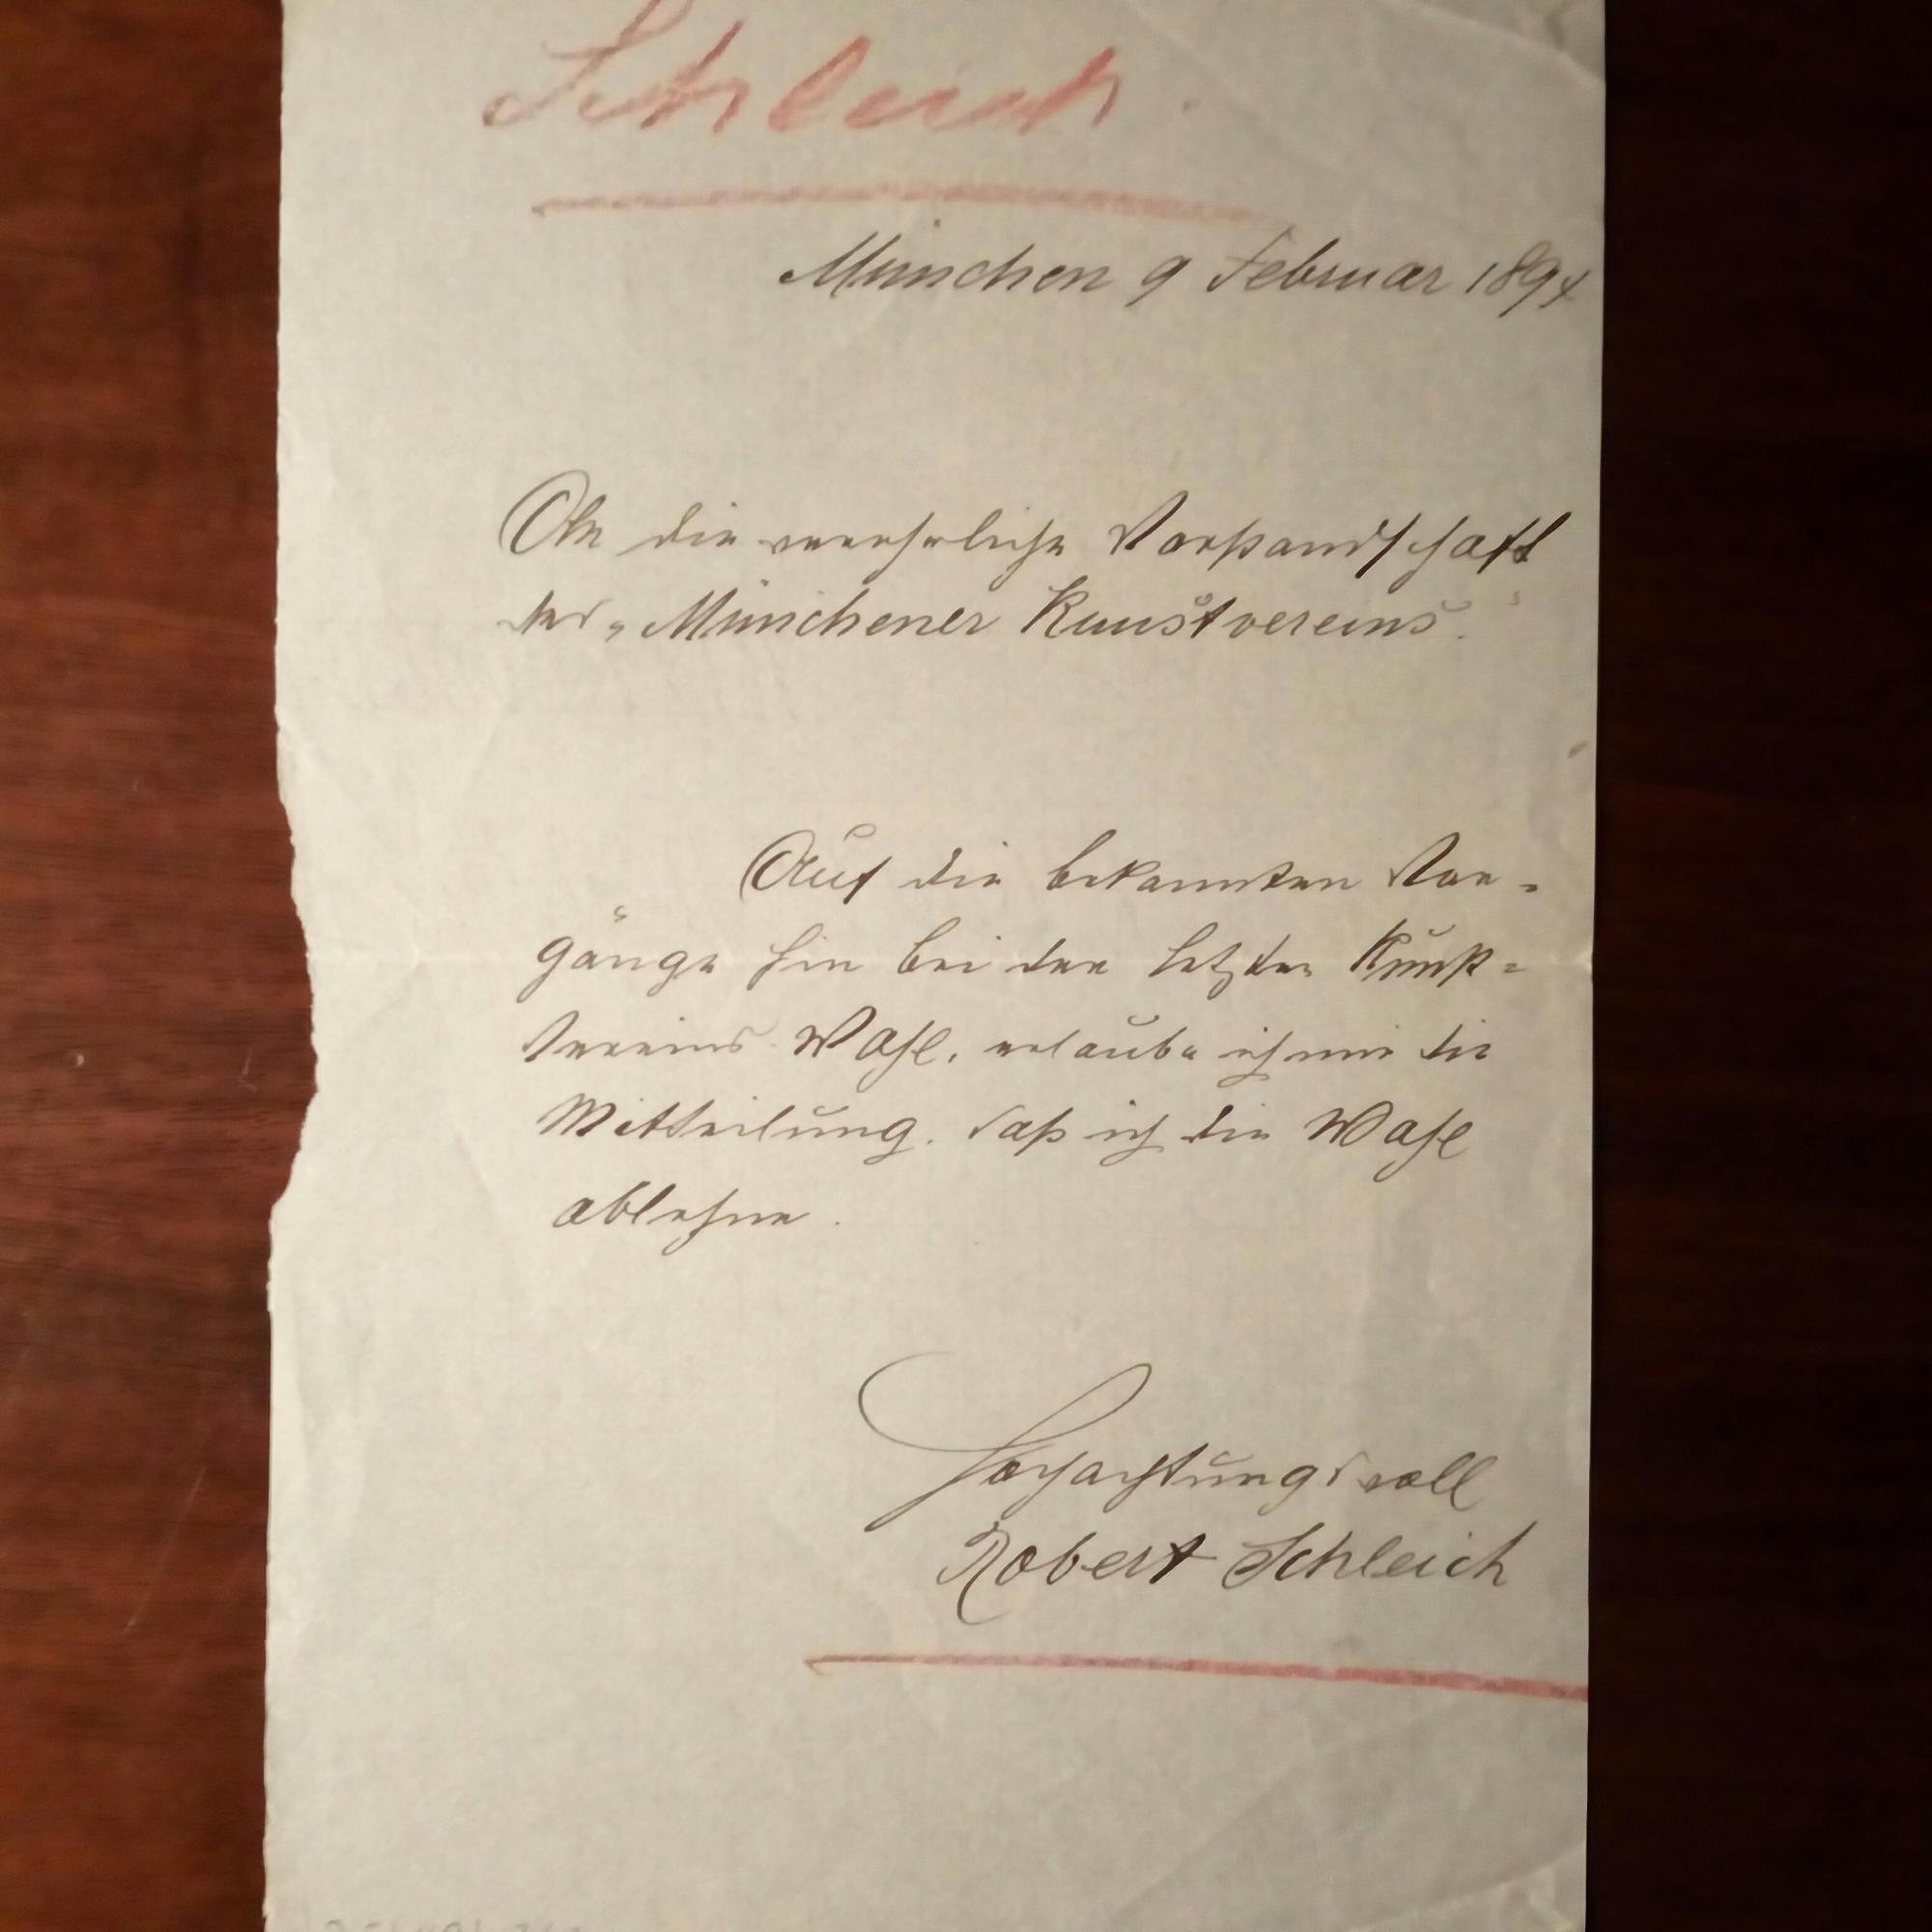 Schleich.
München 9 Februar 1894
An die verehrliche Vorstandschaft
des „Münchener Kunstvereins."
Auf die bekannten Vor-
gänge hin bei der letzten Kunst-
Vereins Wahl, erlaube ich mir die
Mittheilung, daß ich die Wahl
ablehne.
Hochachtungsvoll
Robert Schleich